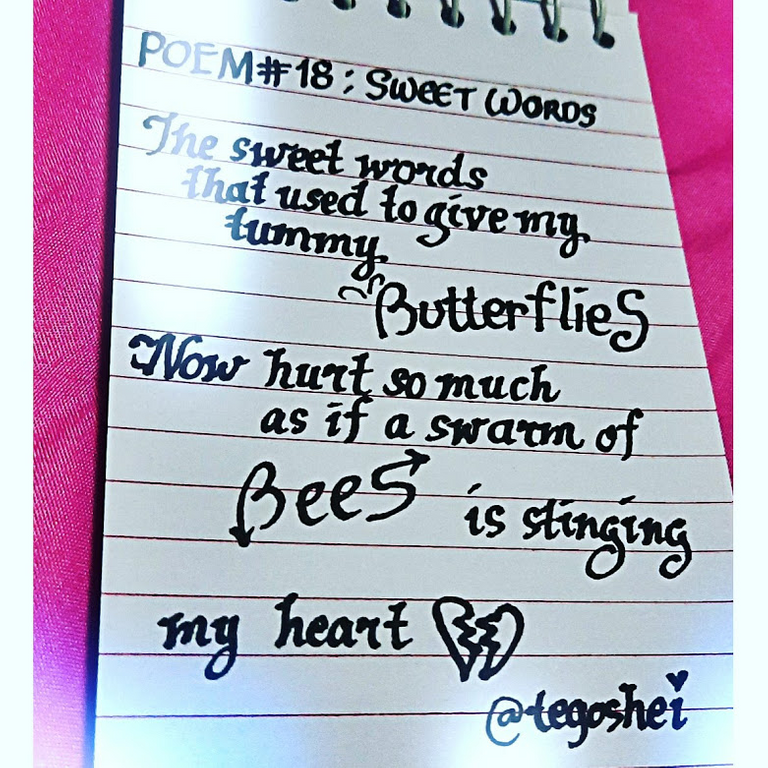 POEM#18: SWEET WORDS
The sweet words
that used to give my
tummy
ButterflieS
Now hurt so much
as if a swarm of
BeeS is stinging
my heart
@tegoshei